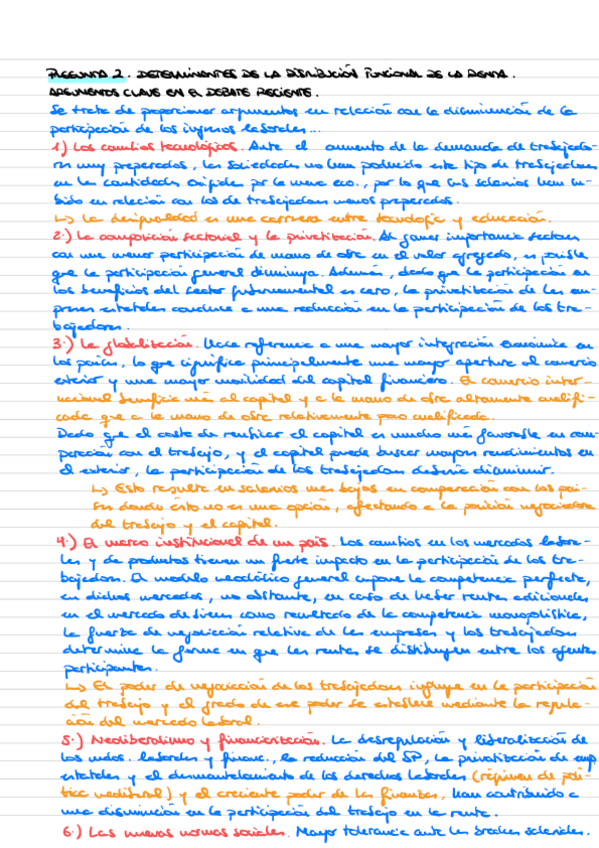 PREGUNTA 2. DETERMINANTES DE LA DISTRIBUCIÓN FUNCIONAL DE LA RENTA.
ARGUMENTOS CLAVE EN EL DEBATE RECIENTE.
Se trata de proporcionar argumentos en relación con la disminución de la
participación de los ingresos laborales...
1) Los cambios tecnológicos. Ante el aumento de la demanda de trabajado-
res muy preparados, las sociedades no han producido este tipo de trabajadores
en las cantidades exigidas por la nueva eco., por lo que sus salarios han su-
bido en relación con los de trabajadores menos preparados.
↳ La desigualdad es una carrera entre tecnología y educación.
2.) La composición sectorial y la privatización. Al ganar importancia sectores
con una menor participación de mano de obra en el valor agregado, es posible
que la participación general disminuya. Además, dado que la participación en
los beneficios del sector gubernamental es cero, la privatización de las em-
presas estatales conduce a una reducción en la participación de los tra-
bajadores.
3.) La globalización. Hace referencia a una mayor integración económica en
los países, lo que significa principalmente una mayor apertura al comercio
exterior y una mayor movilidad del capital financiero. El comercio inter-
nacional beneficia más al capital y a la mano de obra altamente cualifi-
cada que a la mano de obra relativamente poco cualificada.
Dado que el coste de reubicar el capital es mucho más favorable en com-
paración con el trabajo, y el capital puede buscar mayores rendimientos en
el exterior, la participación de los trabajadores debería disminuir.
↳ Esto resulta en salarios más bajos en comparación con los paí-
ses donde ésto no es una opción, afectando a la posición negociadora
del trabajo y el capital.
4.) El marco institucional de un país. Los cambios en los mercados labora-
les y de productos tienen un fuerte impacto en la participación de los tra-
bajadores. El modelo neoclásico general supone la competencia perfecta,
en dichos mercados, no obstante, en caso de haber rentas adicionales
en el mercado de bienes como resultado de la competencia monopolística,
la fuerza de negociación relativa de las empresas y los trabajadores
determina la forma en que las rentas se distribuyen entre los agentes
participantes.
↳ El poder de negociación de los trabajadores influye en la participación
del trabajo y el grado de ese poder se establece mediante la regula-
ción del mercado laboral.
5.) Neoliberalismo y financierización. La desregulación y liberalización de
los mdos. laborales y financ., la reducción del SP, la privatización de emp
estatales y el desmantelamiento de los derechos laborales (régimen de polí-
tica neoliberal) y el creciente poder de las finanzas, han contribuido a
una disminución en la participación del trabajo en la renta.
6.) Las nuevas normas sociales. Mayor tolerancia ante las brechas salariales.